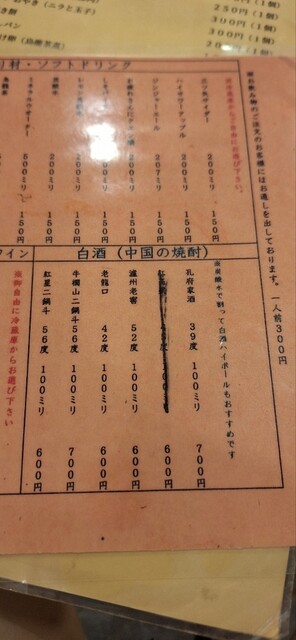 おやき(ニラと玉子)
250円(1個)
300円(1個)
300円(1個)
り材・ソフトドリンク
※お飲み物のご注文のお客様にはお通しを出しております。一人前300円
※冷蔵庫からご自由にお選び下さい。
三ツ矢サイダー 200ミリ 150円
ハイサワーアップル 200ミリ 150円
ジンジャーエール 207ミリ 150円
200ミリ 150円
200ミリ 150円
200ミリ 150円
200ミリ 150円
ミネラルウオーター 500ミリ 150円
烏龍茶
白酒(中国の焼酎)
※炭酸水で割って白酒ハイボールもおすすめです
孔府家酒 39度 100ミリ 700円
600円
瀘州老窖 52度 100ミリ 600円
老龍口 42度 100ミリ 600円
牛欄山二鍋斗 56度 100ミリ 700円
紅星二鍋斗 56度 100ミリ 600円
イン
※御自由に冷蔵庫からお選び下さい